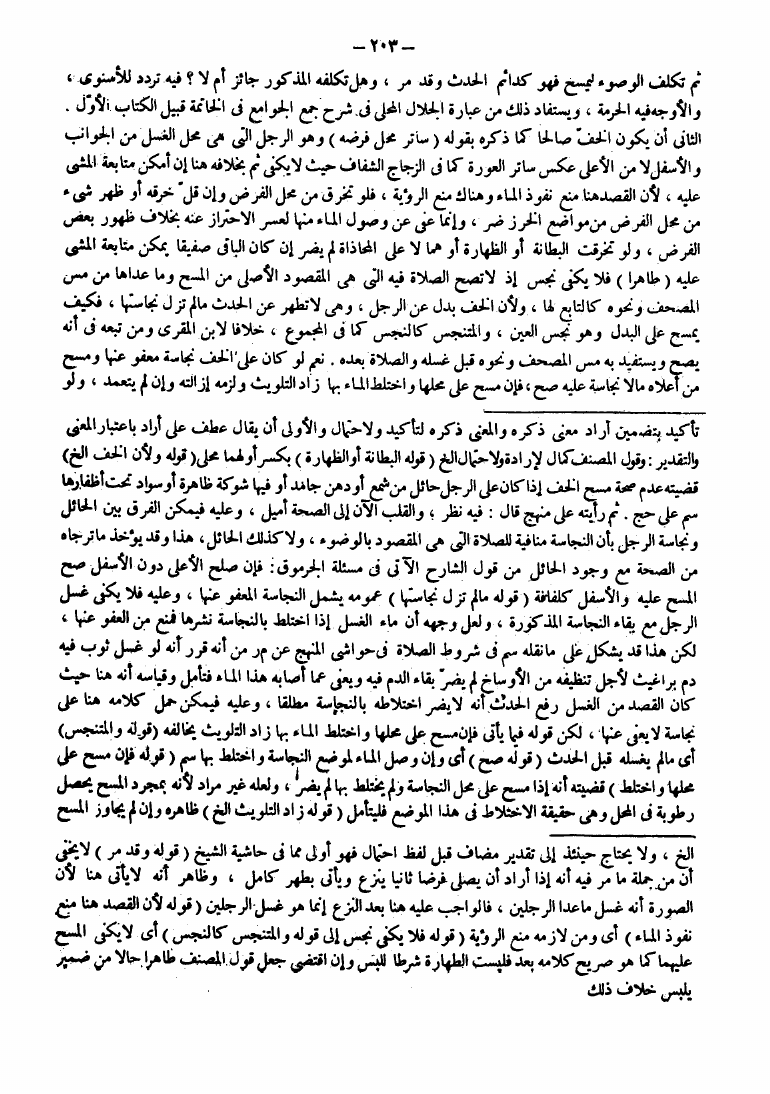 – ٢٠٣ –
ثم تكلف الوضوء ليمسح فهو كدائم الحدث وقد مر ، وهل تكلفه المذكور جائز أم لا ؟ فيه تردد للأسنوى ،
والأوجه فيه الحرمة ، ويستفاد ذلك من عبارة الجلال المحلى فى شرح جمع الجوامع فى الخاتمة قبيل الكتاب الأوّل .
الثانى أن يكون الخفّ صالحا كما ذكره بقوله ( ساتر محل فرضه ) وهو الرجل التى هى محل الغسل من الجوانب
والأسفل لا من الأعلى عكس ساتر العورة كما فى الزجاج الشفاف حيث لايكفى ثم بخلافه هنا إن أمكن متابعة المشى
عليه ، لأن القصد هنا منع نفوذ الماء وهناك منع الرؤية ، فلو تخرق من محل الفرض وإن قلّ خرقه أو ظهر شىء
من محل الفرض من مواضع الخرز ضر ، وإنما عفى عن وصول الماء منها لعسر الاحتراز عنه بخلاف ظهور بعض
الفرض ، ولو تخرقت البطانة أو الظهارة أو هما لا على المحاذاة لم يضر إن كان الباقى صفيقا يمكن متابعة المشى
عليه ( طاهرا ) فلا يكفى نجس إذ لاتصح الصلاة فيه التى هى المقصود الأصلى من المسح وما عداها من مس
المصحف ونحوه كالتابع لها ، ولأن الخف بدل عن الرجل ، وهى لاتطهر عن الحدث مالم تزل نجاستها ، فكيف
يمسح على البدل وهو نجس العين ، والمتنجس كالنجس كما فى المجموع ، خلافا لابن المقرى ومن تبعه فى أنه
يصح ويستفيد به مس المصحف ونحوه قبل غسله والصلاة بعده . نعم لو كان على الخف نجاسة معفو عنها ومسح
من أعلاه مالا نجاسة عليه صح ، فإن مسح على محلها واختلط الماء بها زاد التلويث ولزمه إزالته وإن لم يتعمد ، ولو
تأكيد بتضمين أراد معنى ذكره والمعنى ذكره لتأكيد ولاحتمال والأولى أن يقال عطف على أراد باعتبار المعنى
والتقدير : وقول المصنف كمال لإرادة ولاحتمال الخ ( قوله البطانة أو الظهارة ) بكسر أولهما محلى ( قوله ولأن الخف الخ )
قضيته عدم صحة مسح الخف إذا كان على الرجل حائل من شمع أو دهن جامد أو فيها شوكة ظاهرة أو سواد تحت أظفارها
سم على حج . ثم رأيته على منهج قال : فيه نظر ، والقلب الآن إلى الصحة أميل ، وعليه فيمكن الفرق بين الحائل
ونجاسة الرجل بأن النجاسة منافية للصلاة التى هى المقصود بالوضوء ، ولا كذلك الحائل ، هذا وقد يؤخذ ماترجاه
من الصحة مع وجود الحائل من قول الشارح الآتى فى مسئلة الجرموق : فإن صلح الأعلى دون الأسفل صح
المسح عليه والأسفل كلفافة ( قوله مالم تزل نجاستها ) عمومه يشمل النجاسة المعفو عنها ، وعليه فلا يكفى غسل
الرجل مع بقاء النجاسة المذكورة ، ولعل وجهه أن ماء الغسل إذا اختلط بالنجاسة نشرها فمنع من العفو عنها ،
لكن هذا قد يشكل على مانقله سم فى شروط الصلاة فى حواشى المنهج عن مر من أنه قرر أنه لو غسل ثوب فيه
دم براغيث لأجل تنظيفه من الأوساخ لم يضرّ بقاء الدم فيه ويعفى عما أصابه هذا الماء فتأمل وقياسه أنه هنا حيث
كان القصد من الغسل رفع الحدث أنه لايضر اختلاطه بالنجاسة مطلقا ، وعليه فيمكن حمل كلامه هنا على
نجاسة لايعفى عنها ، لكن قوله فيما يأتى فإن مسح على محلها واختلط الماء بها زاد التلويث يخالفه ( قوله والمتنجس )
أى مالم يغسله قبل الحدث ( قوله صح ) أى وإن وصل الماء لموضع النجاسة واختلط بها سم ( قوله فإن مسح على
محلها واختلط ) قضيته أنه إذا مسح على محل النجاسة ولم يختلط بها لم يضر ، ولعله غير مراد لأنه بمجرد المسح يحصل
رطوبة فى المحل وهى حقيقة الاختلاط فى هذا الموضع فليتأمل ( قوله زاد التلويث الخ ) ظاهره وإن لم يجاوز المسح
الخ ، ولا يحتاج حينئذ إلى تقدير مضاف قبل لفظ احتمال فهو أولى مما فى حاشية الشيخ ( قوله وقد مر ) لايخفى
أن من جملة ما مر فيه أنه إذا أراد أن يصلى فرضا ثانيا ينزع ويأتى بطهر كامل ، وظاهر أنه لايأتى هنا لأن
الصورة أنه غسل ماعدا الرجلين ، فالواجب عليه هنا بعد النزع إنما هو غسل الرجلين ( قوله لأن القصد هنا منع
نفوذ الماء ) أى ومن لازمه منع الرؤية ( قوله فلا يكفى نجس إلى قوله والمتنجس كالنجس ) أى لايكفى المسح
عليهما كما هو صريح كلامه بعد فليست الطهارة شرطا للبس وإن اقتضى جعل قول المصنف طاهرا حالا من ضمير
يلبس خلاف ذلك